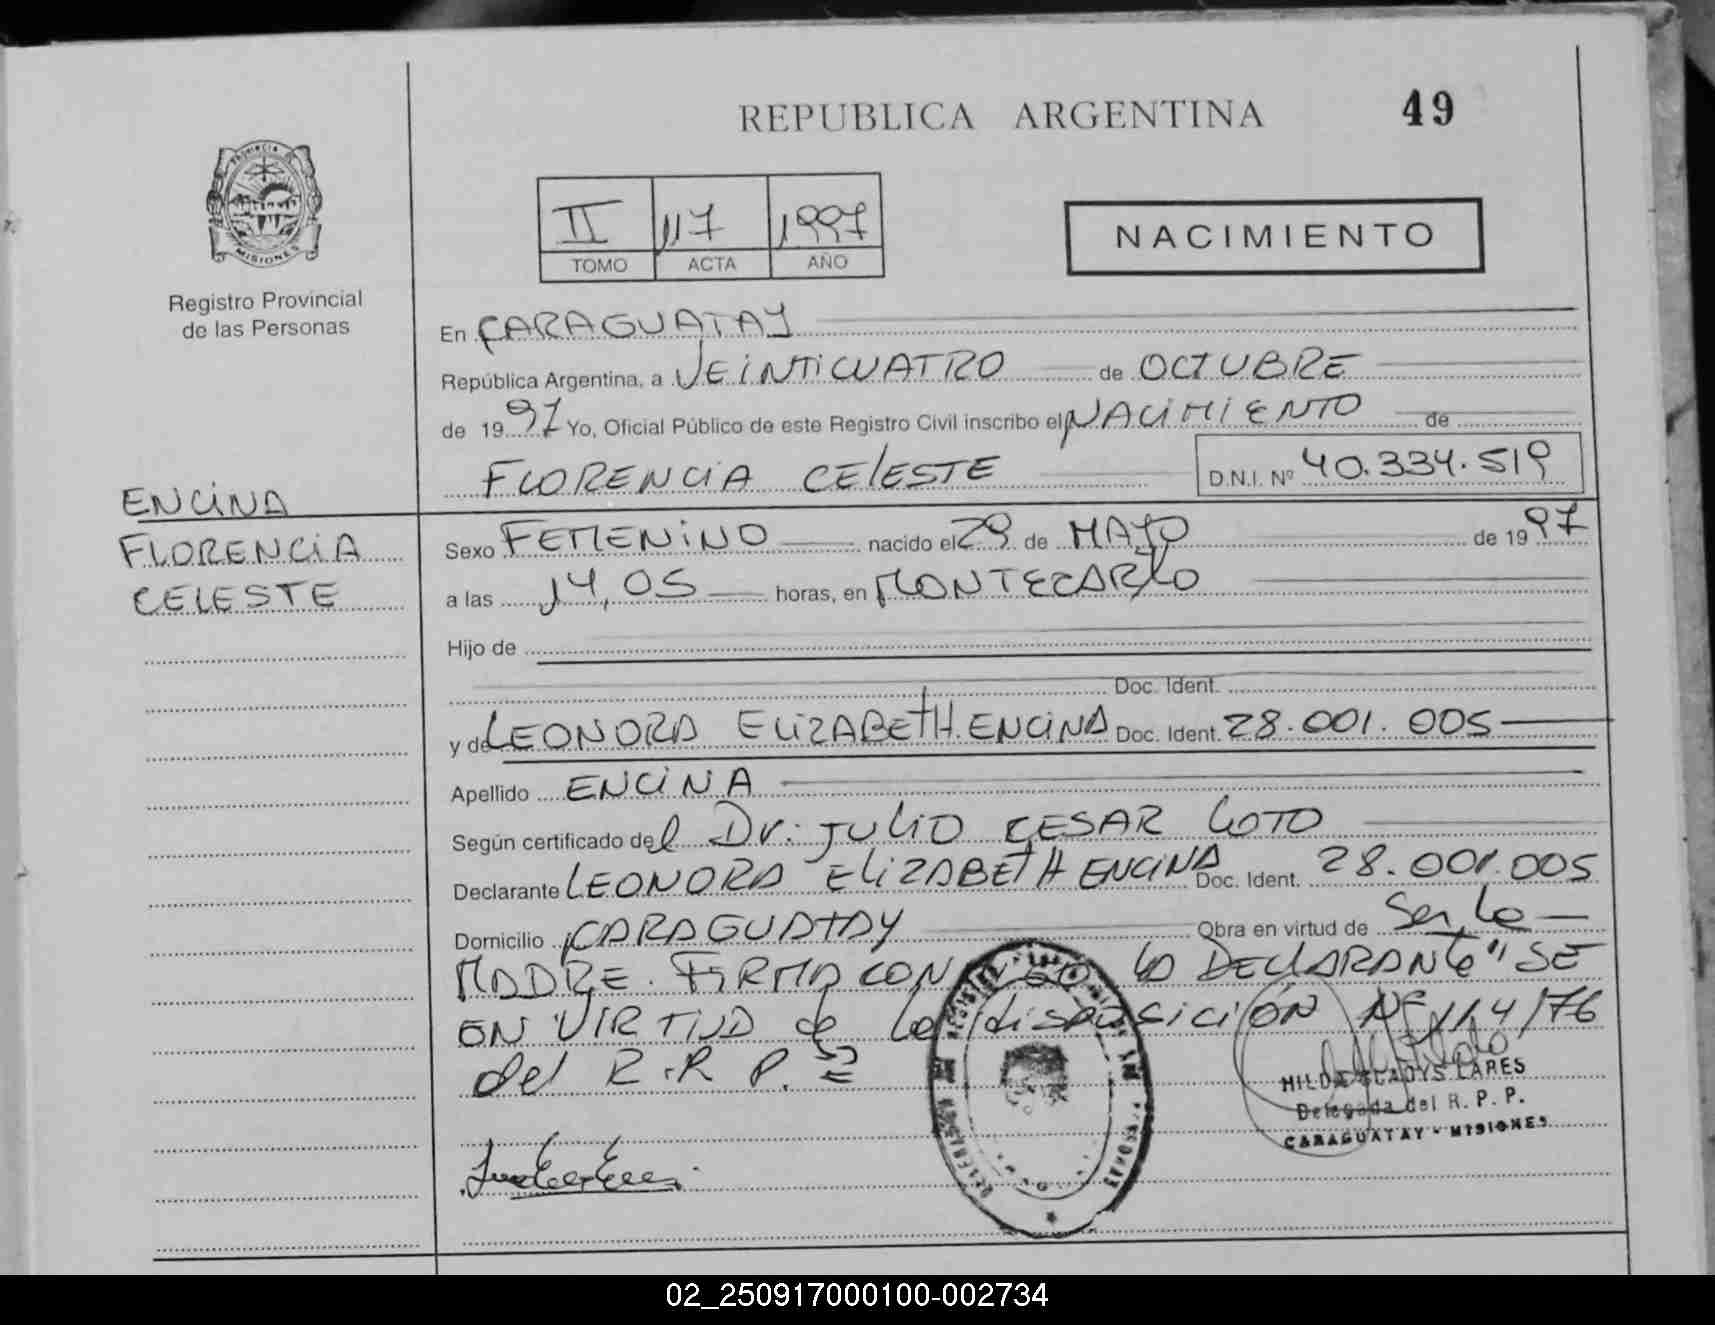 REPUBLICA ARGENTINA 49
PROVINCIA DE
MISIONES
Registro Provincial
de las Personas
II 117 1997
TOMO ACTA AÑO
NACIMIENTO
En CARAGUATAY
República Argentina, a VEINTICUATRO de OCTUBRE
de 1997 Yo, Oficial Público de este Registro Civil inscribo el NACIMIENTO de
FLORENCIA CELESTE D.N.I. Nº 40.334.519
ENCINA
FLORENCIA
CELESTE
Sexo FEMENINO nacido el 29 de MAYO de 1997
a las 14,05 horas, en MONTECARLO
Hijo de
Doc. Ident.
y de LEONORA ELIZABETH ENCINA Doc. Ident. 28.001.005
Apellido ENCINA
Según certificado del Dr: JULIO CESAR COTO
Declarante LEONORA ELIZABETH ENCINA Doc. Ident. 28.001.005
Domicilio CARAGUATAY Obra en virtud de Ser la
MADRE. FIRMA CON la DECLARANTE" SE
EN VIRTUD de la disposición Nº 114/76
del R.R.P.
HILDA GLADYS LARES
Delegada del R. P. P.
CARAGUATAY - MISIONES
02_250917000100-002734